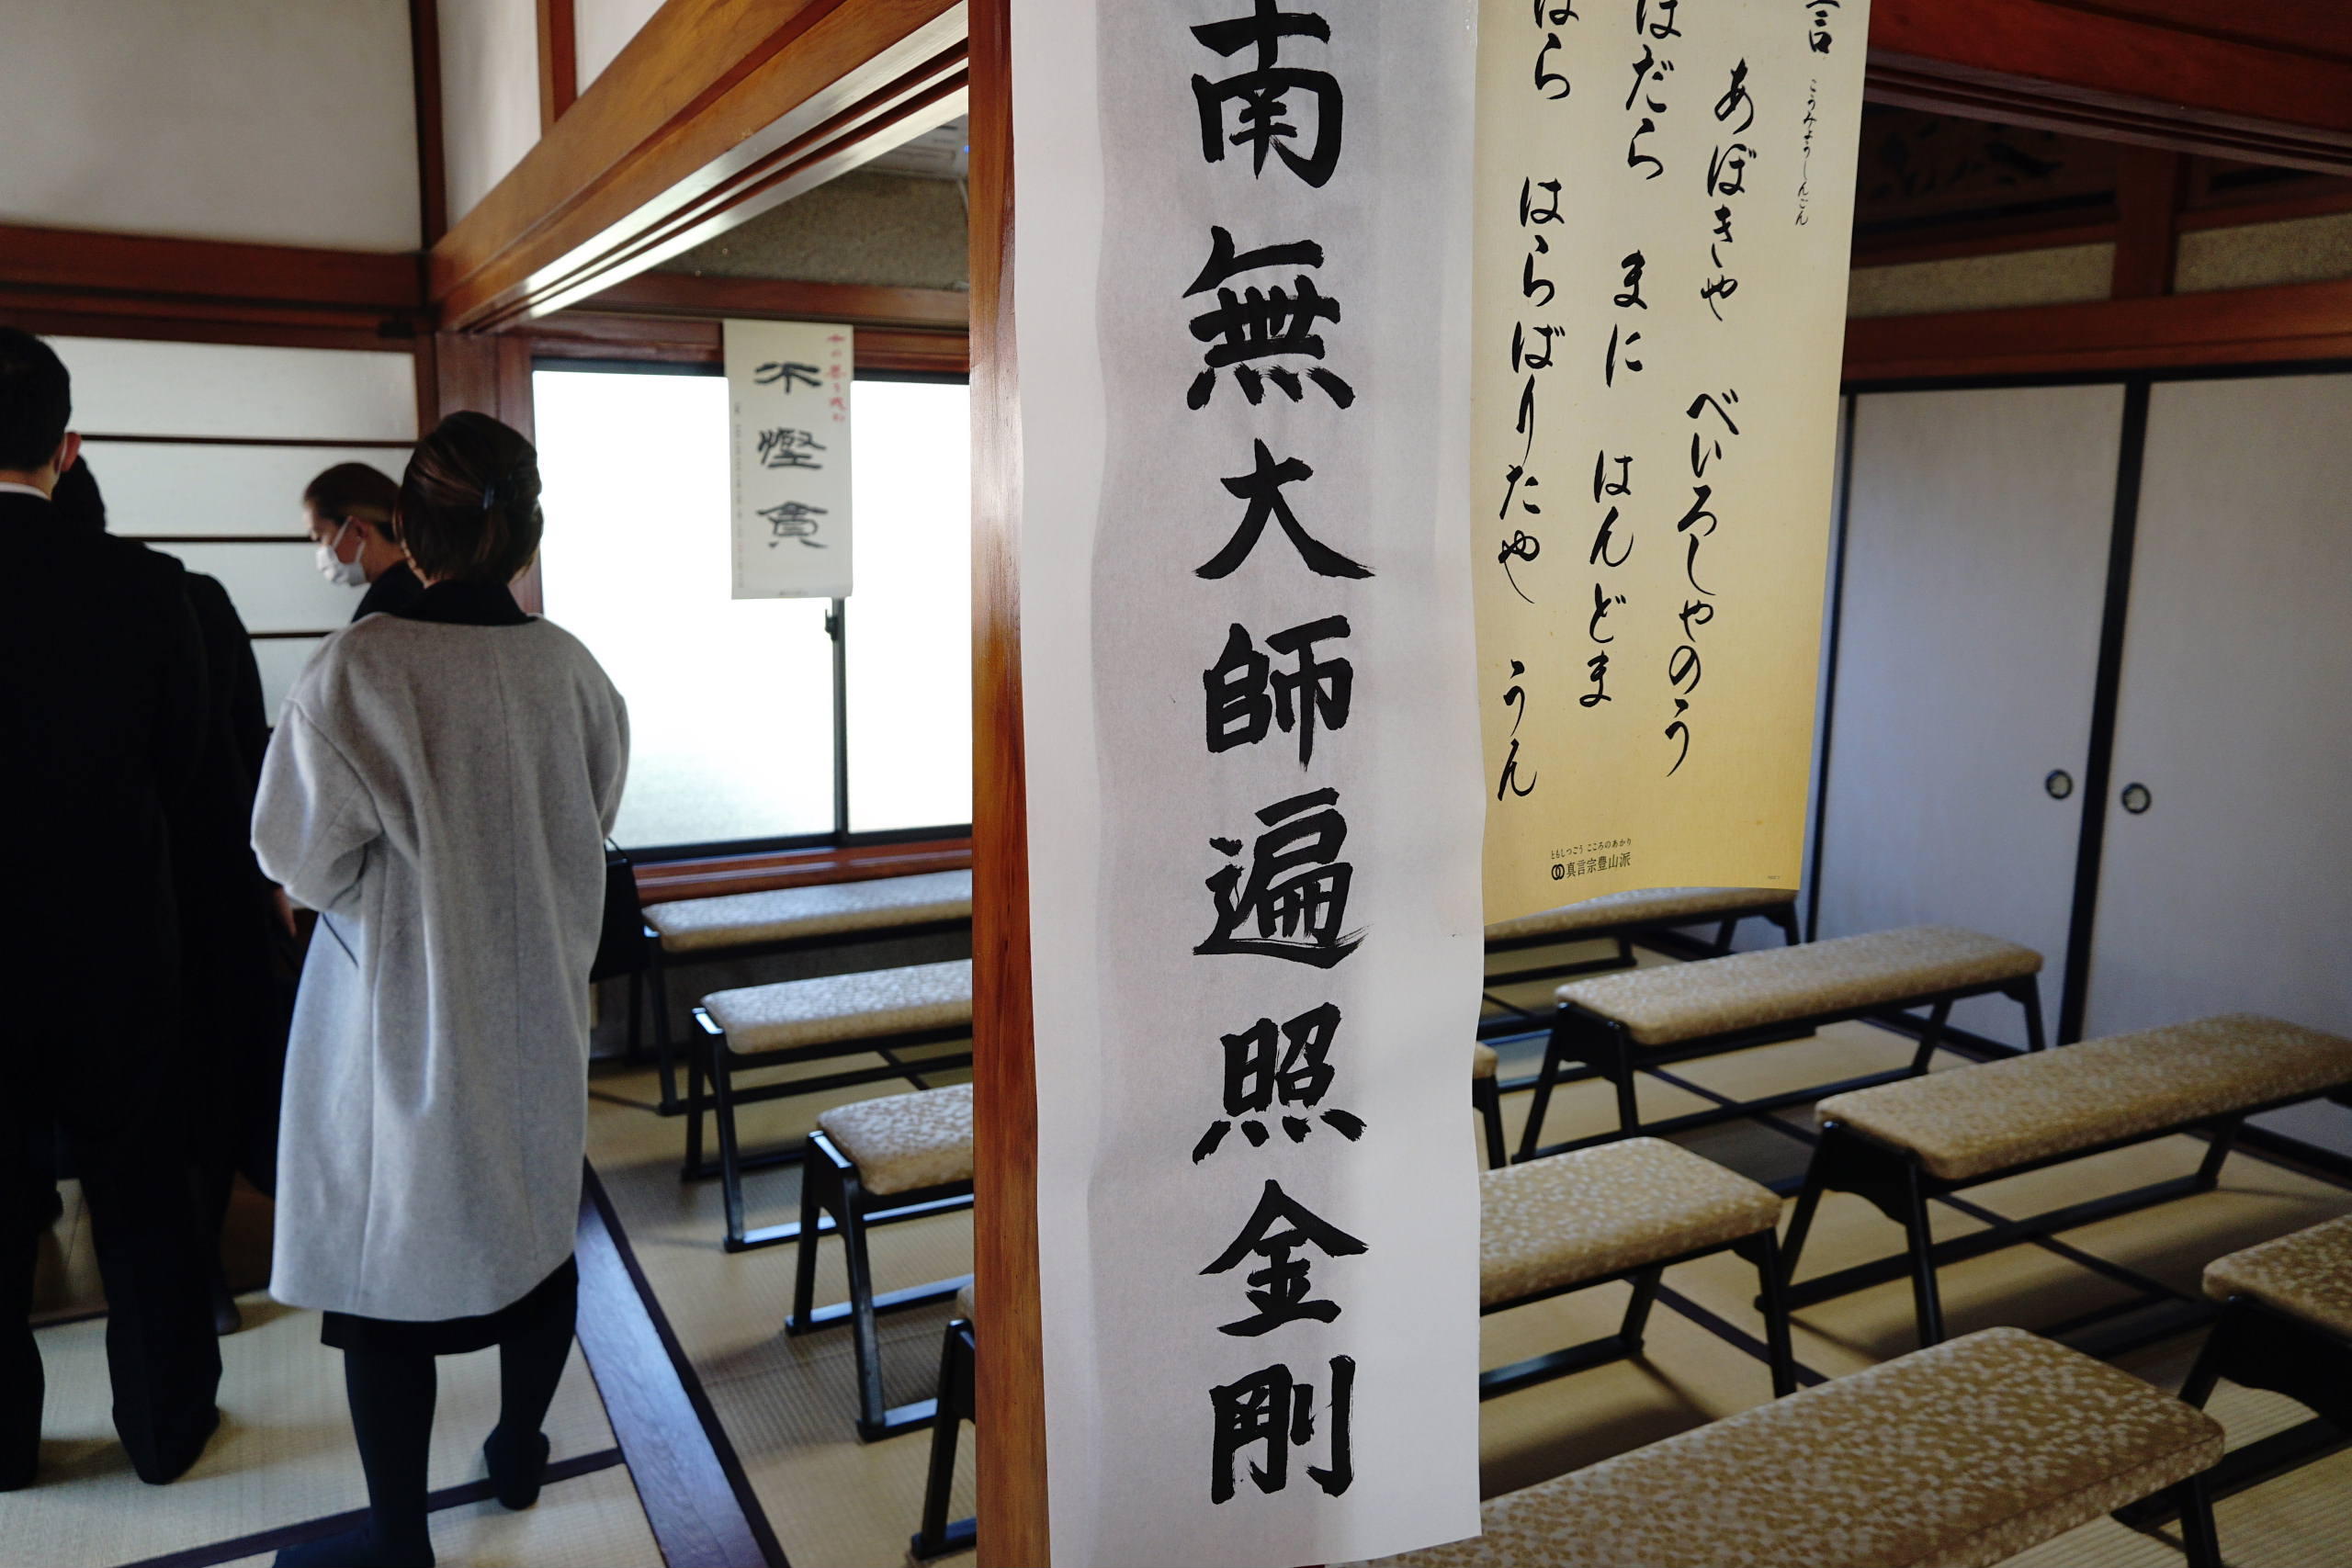 南無大師遍照金剛
言
こうみょうしんごん
あぼきゃ べいろしゃのう
はだら まに はんどま
はら はらばりたや うん
ともしつごう こころのあかり
真言宗豊山派
不慳貪